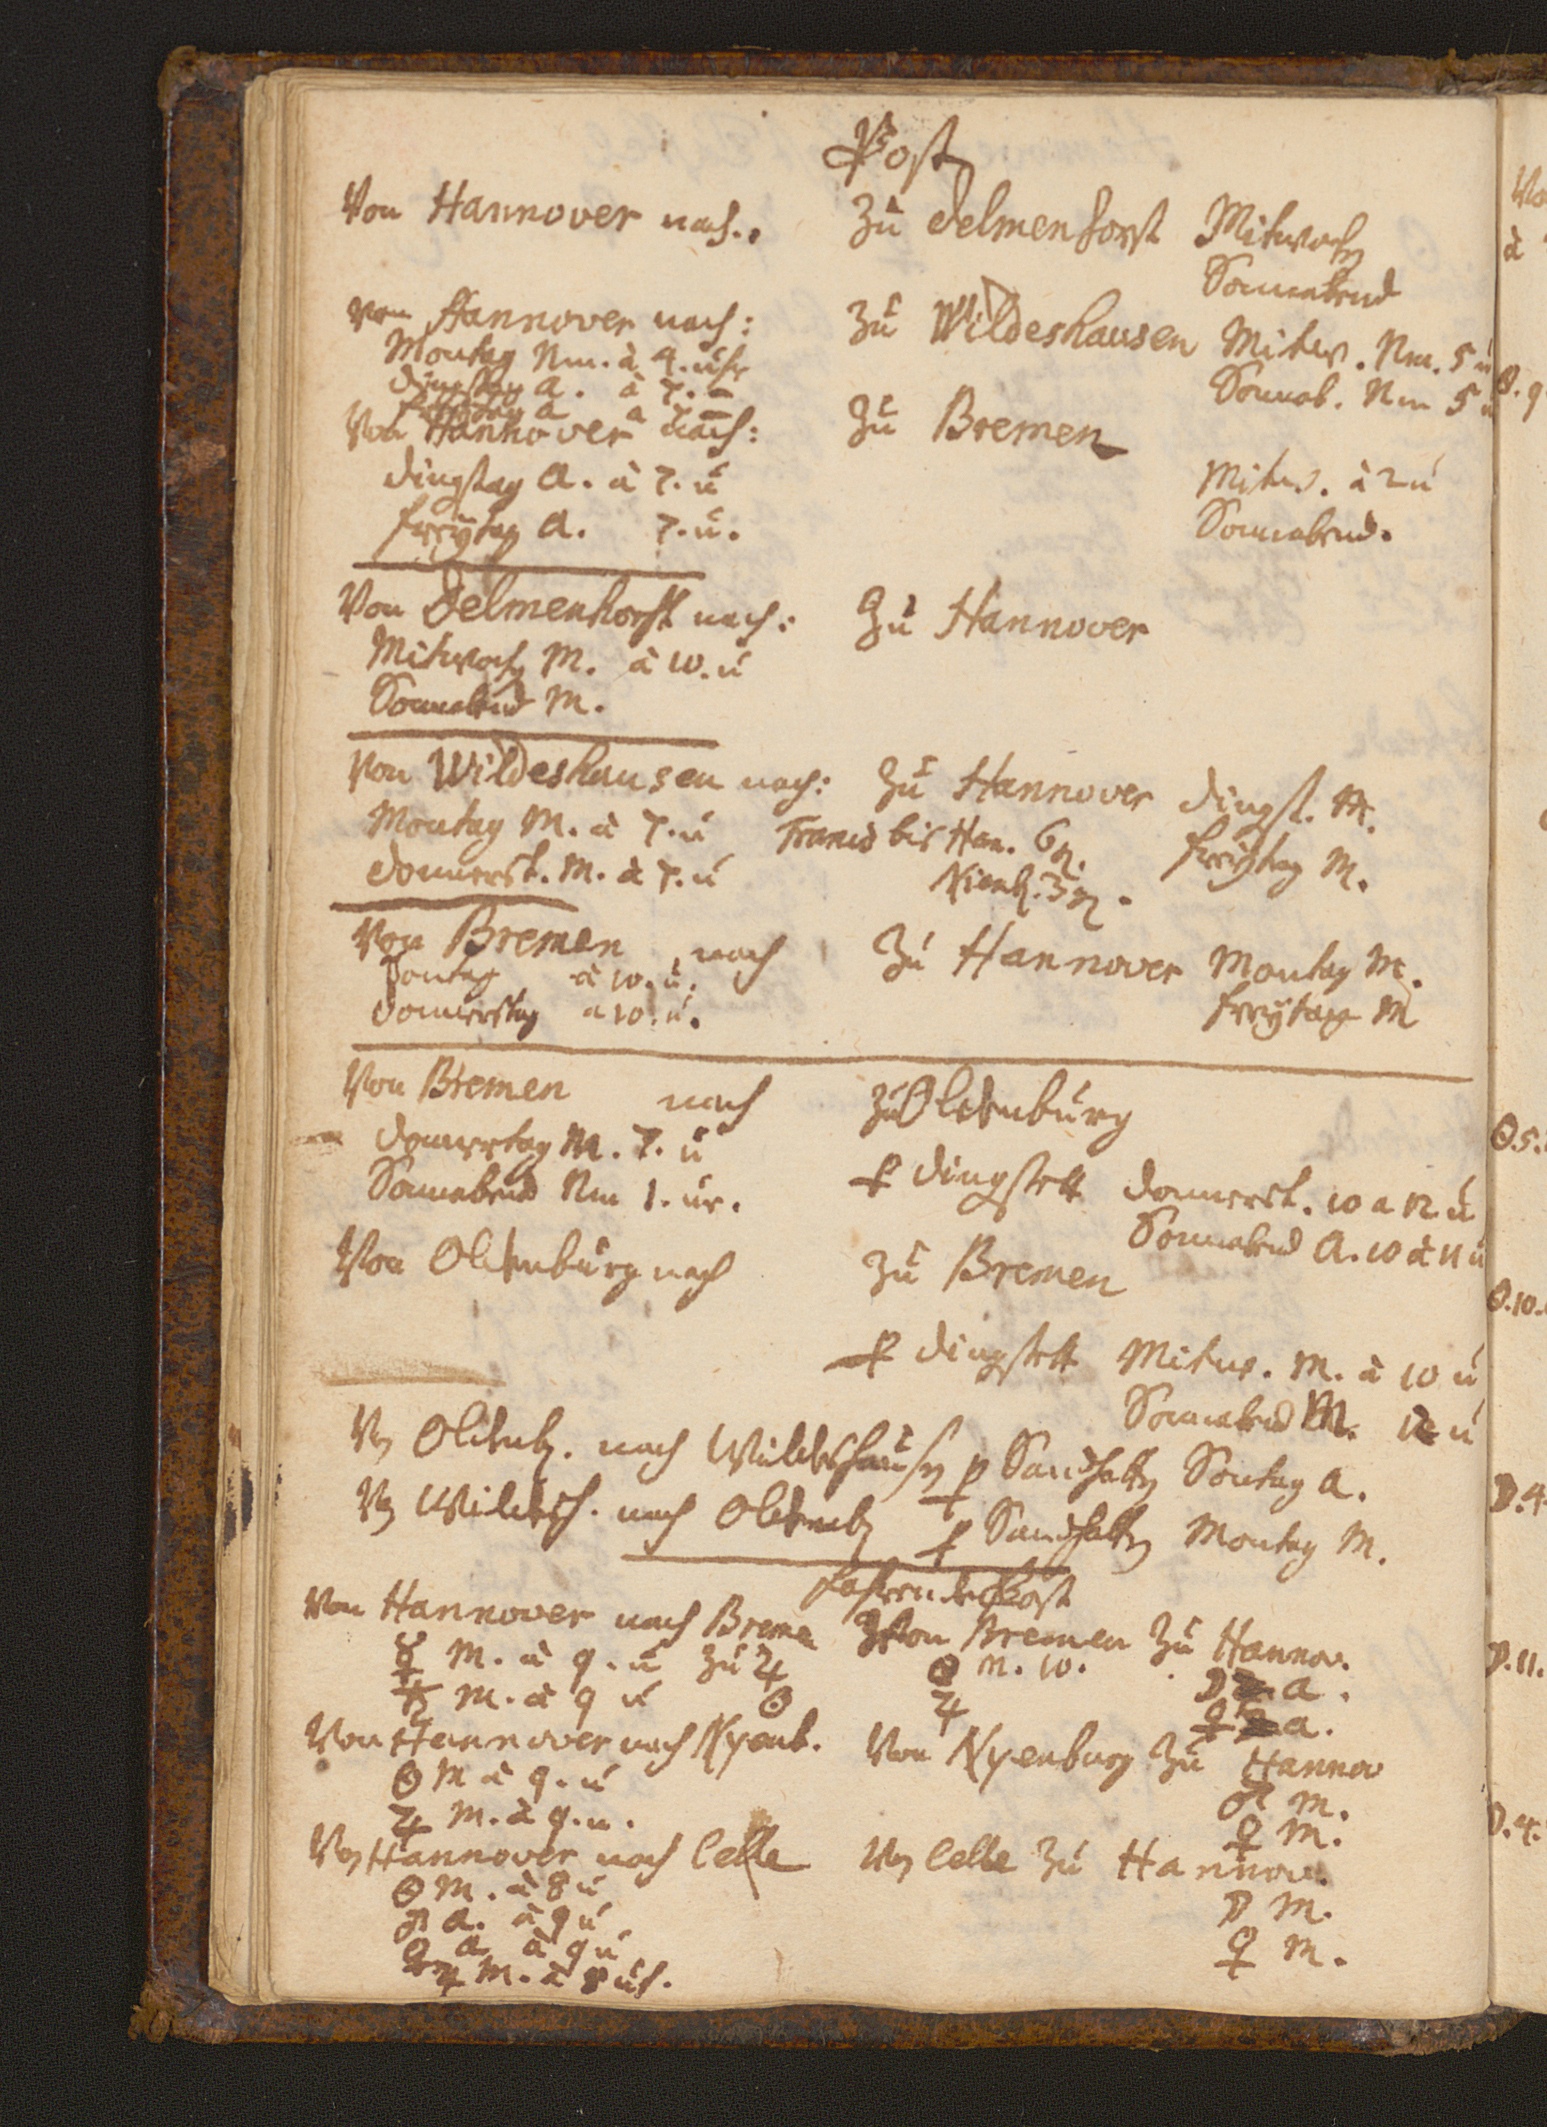 Post
Von Hannover nach. Zu Delmenhorst Mitwoch
Sonnabend
Von Hannover nach: Zu Wildeshausen Mitw. Nm. 5 u
Montag Nm. à 4. uhr Sonnab. Nm 5 u
Dingstag A. à 7. -
Freÿtag A a 7 -
Von Hannover nach: Zu Bremen
Dingstag A. à 7. u Mitw. à 2 u
Freÿtag A. 7. u. Sonnabend.
Von Delmenhorst nach: Zu Hannover
Mitwoch M. à 10. u
Sonnabend M.
Von Wildeshausen nach: Zu Hannover Dingst. M.
Montag M. à 7. u bis Han. 6 Freÿtag M.
Donnerst. M. à 7. u Nienb. 3
Von Bremen nach Zu Hannover Montag M.
Sontag à 10. u. Freÿtag M
Donnerstag a 10. u.
Von Bremen nach Zu Oldenburg
Donnerstag M. 7. u
p Dingstett Donnerst. 10 a 12. u
Sonnabend Nm 1. ur. Sonnabend A. 10 à 11 u
Von Oldenburg nach Zu Bremen
p Dingstett Mitw. M. à 10 u
Sonnabend M. u
Vn Oldenb. nach Wildeshausn p Sandhattn Sontag A.
Vn Wildesh. nach Oldenb p Sandhattn Montag M.
Fahrende Post
Von Hannover nach Breme Von Bremen Zu Hannov.
☿ M. à 9. u Zu ♃ ☉ M. 10. ☽ A.
♄ M. à 9 u ☉ ♃ ♀ A.
Von Hannover nach Nyenb. Von Nyenburg Zu Hannov
☉ M à 9. u ♂ M.
♃ M. à 9. u. ♀ M.
Vn Hannover nach Celle Vn Celle Zu Hannov.
☉ M. à 8 u ☽ M.
♂ A. à 9 u ♀ M.
♀ A à 9 u
♃ M. à 8 uh.